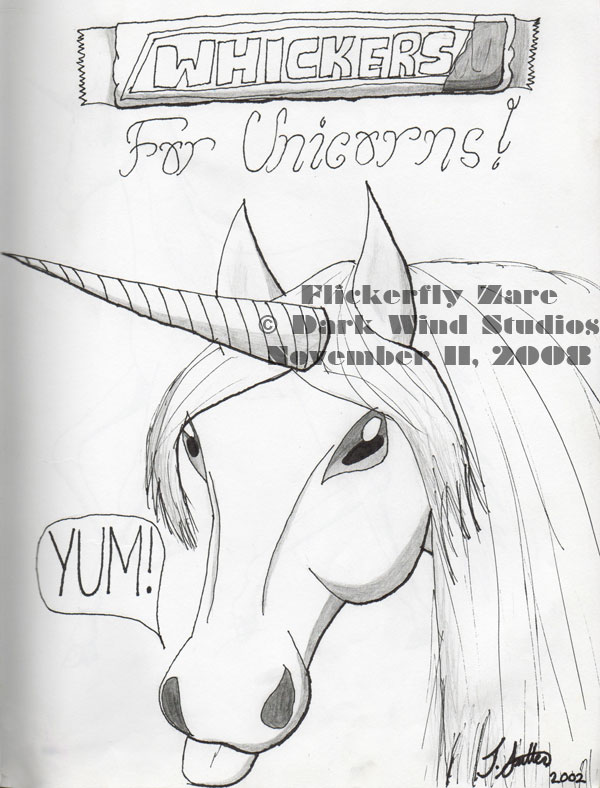 WHICKERS
For Unicorns!
Flickerfly Zare
© Dark Wind Studios
November 11, 2008
YUM!
2002